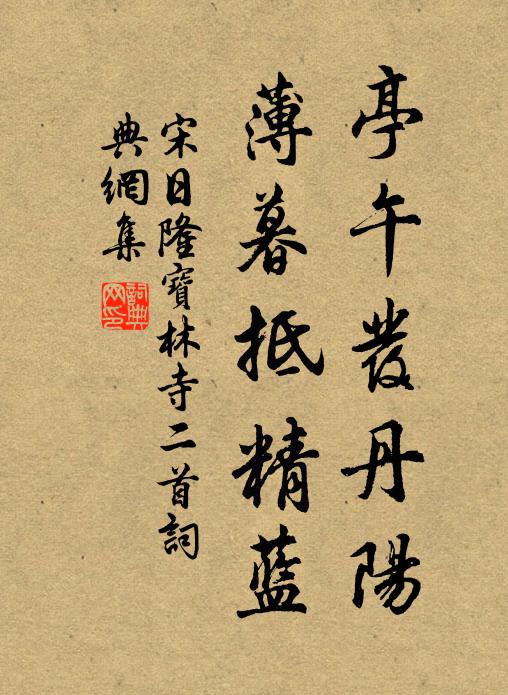 亭午發丹陽
薄暮抵精藍
宋日隆寶林寺二首詞
典網集
詞典網印